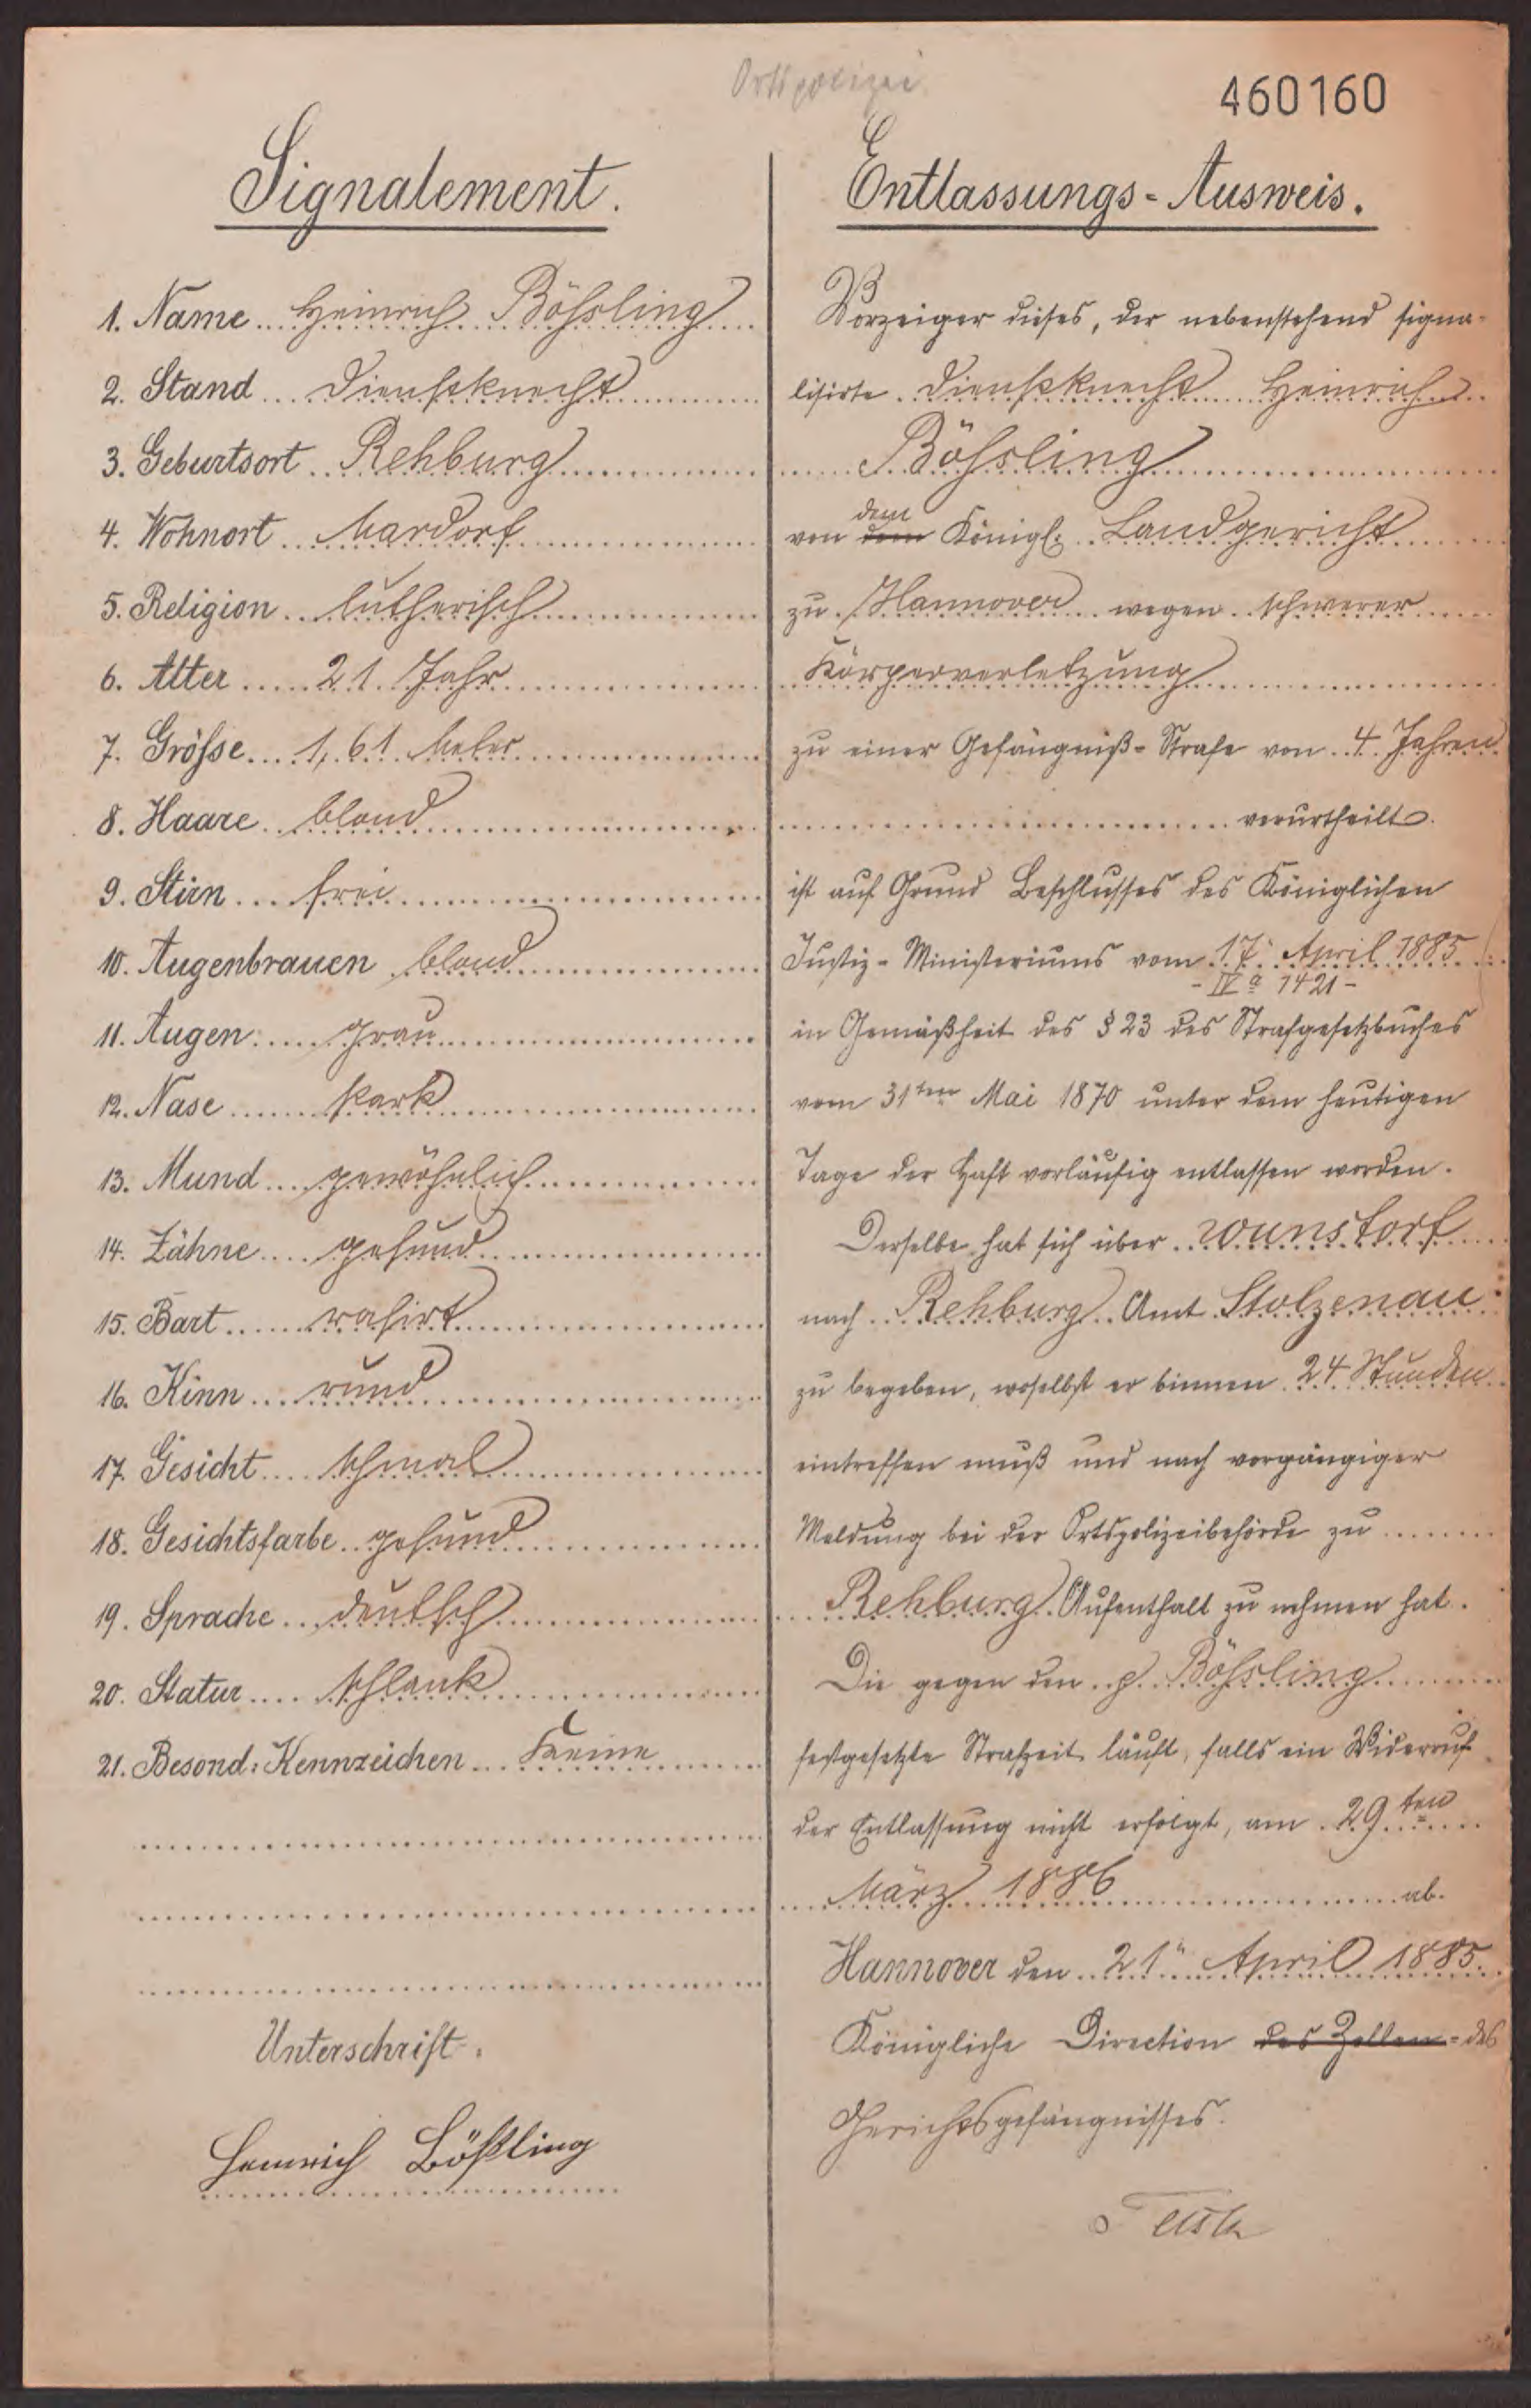 Ortspolizei
460160
Signalement.
1. Name Heinrich Bößling
2. Stand Dienstknecht
3. Geburtsort Rehburg
4. Wohnort Mardorf
5. Religion lutherisch
6. Alter 21 Jahr
7. Grösse 1,61 Meter
8. Haare blond
9. Stirn frei
10. Augenbrauen blond
11. Augen: grau
12. Nase stark
13. Mund gewöhnlich
14. Zähne gesund
15. Bart rasirt
16. Kinn rund
17. Gesicht schmal
18. Gesichtsfarbe gesund
19. Sprache deutsch
20. Statur schlank
21. Besond: Kennzeichen Keine
Unterschrift.
Heinrich Bößling
Entlassungs-Ausweis.
Vorzeiger dieses, der nebenstehend signa-
lisirte Dienstknecht Heinrich
Bößling
dem
von dem Königl: Landgericht
zu Hannover wegen schwerer
Körperverletzung
zu einer Gefängniß-Strafe von 4 Jahren
verurtheilt
ist auf Grund Beschlusses des Königlichen
Justiz-Ministeriums vom 17. April 1885
- IV a 1421 -
in Gemäßheit des § 23 des Strafgesetzbuches
vom 31ten Mai 1870 unter dem heutigen
Tage der Haft vorläufig entlassen worden.
Derselbe hat sich über Wunstorf
nach Rehburg Amt Stolzenau
zu begeben, woselbst er binnen 24 Stunden
eintreffen muß und nach vorgängiger
Meldung bei der Ortspolizeibehörde zu
Rehburg Aufenthalt zu nehmen hat.
Die gegen den p. Bößling
festgesetzte Strafzeit läuft, falls ein Widerruf
der Entlassung nicht erfolgt, am 29ten
März 1886 ab.
Hannover den 21. April 1885.
Königliche Direction des Zellen- des
Gerichtsgefängnisses.